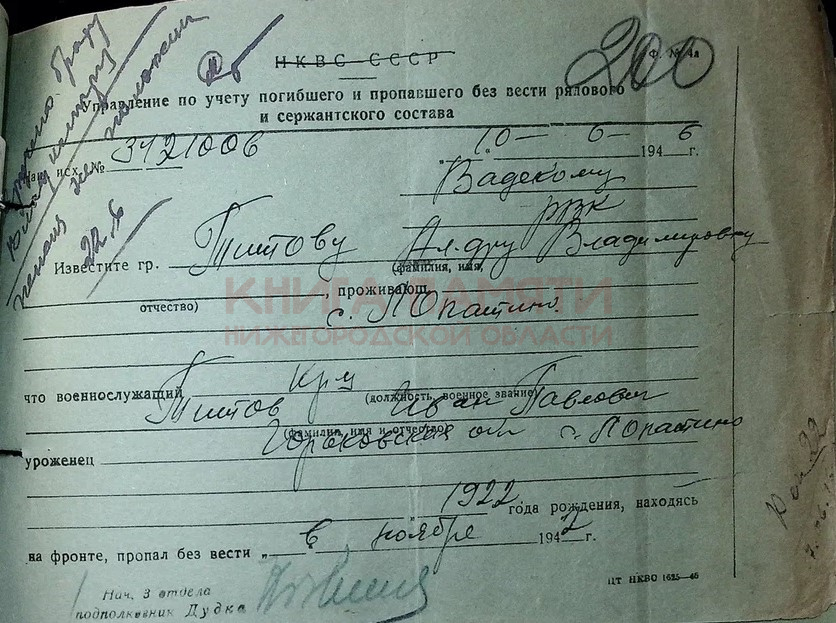 200
НКВС СССР
Ф. № 4а
Управление по учету погибшего и пропавшего без вести рядового
и сержантского состава
исх. № 3421006
„10“ 6 1946 г.
Вадскому
РВК
Известите гр. Титову Ал-дру Владимировичу
(фамилия, имя,
отчество)
, проживающ.
КНИГА ПАМЯТИ
НИЖЕГОРОДСКОЙ ОБЛАСТИ
с. Лопатино.
что военнослужащий Кр-ц
(должность, военное звание)
Титов Иван Павлович
(фамилия, имя и отчество)
уроженец Горьковская обл с. Лопатино
1922 года рождения, находясь
на фронте, пропал без вести „ в “ ноябре 1942 г.
Нач. 3 отдела
подполковник Дудка
ЦТ НКВО 1625—46
22.6